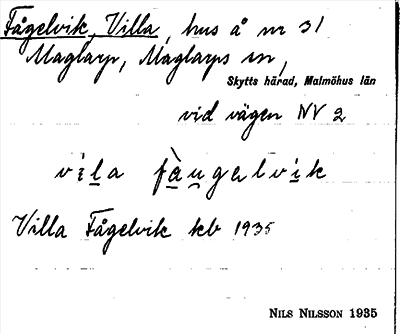 Fågelvik, Villa, hus å nr 31
Maglarp, Maglarps sn,
Skytts härad, Malmöhus län
vid vägen NV 2
vila fàugelvik
Villa Fågelvik kb 1935
NILS NILSSON 1935